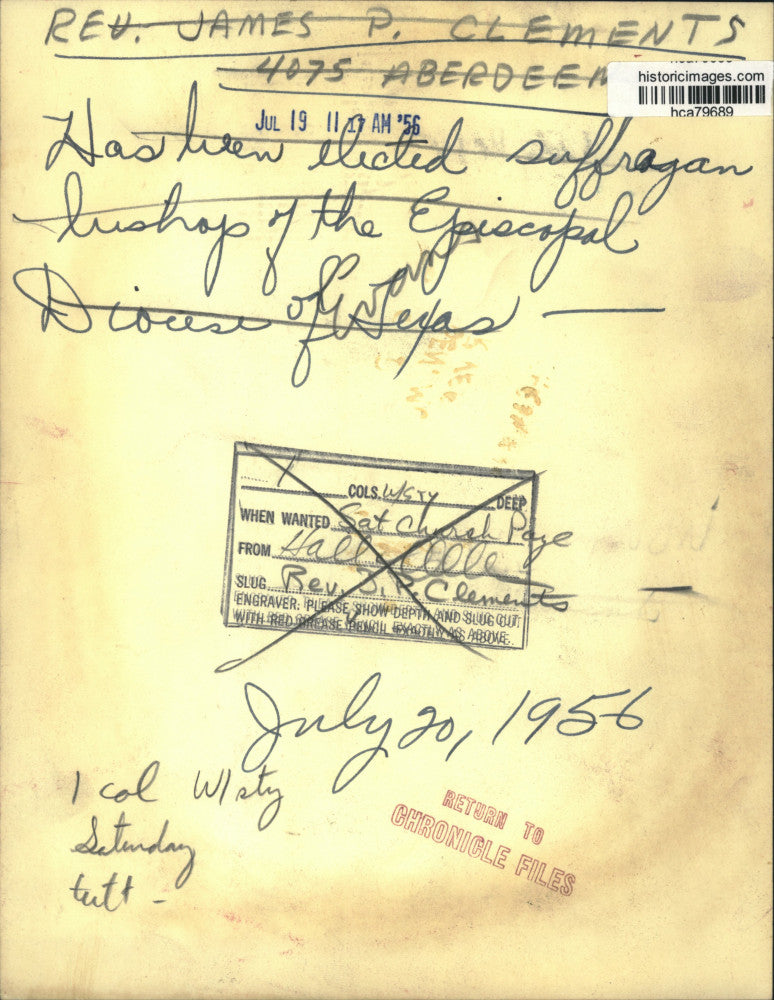 REV. JAMES P. CLEMENTS
4075 ABERDEEN
historicimages.com
hca79689
JUL 19 11 17 AM '56
Has been elected suffragan
bishop of the Episcopal
Diocese of Texas —
1 COLS. W/STY DEEP
WHEN WANTED Sat Church Page
FROM
SLUG Rev. J. P. Clements
ENGRAVER: PLEASE SHOW DEPTH AND SLUG CUT
WITH RED GREASE PENCIL EXACTLY AS ABOVE.
July 20, 1956
1 col W/sty
Saturday
RETURN TO
CHRONICLE FILES